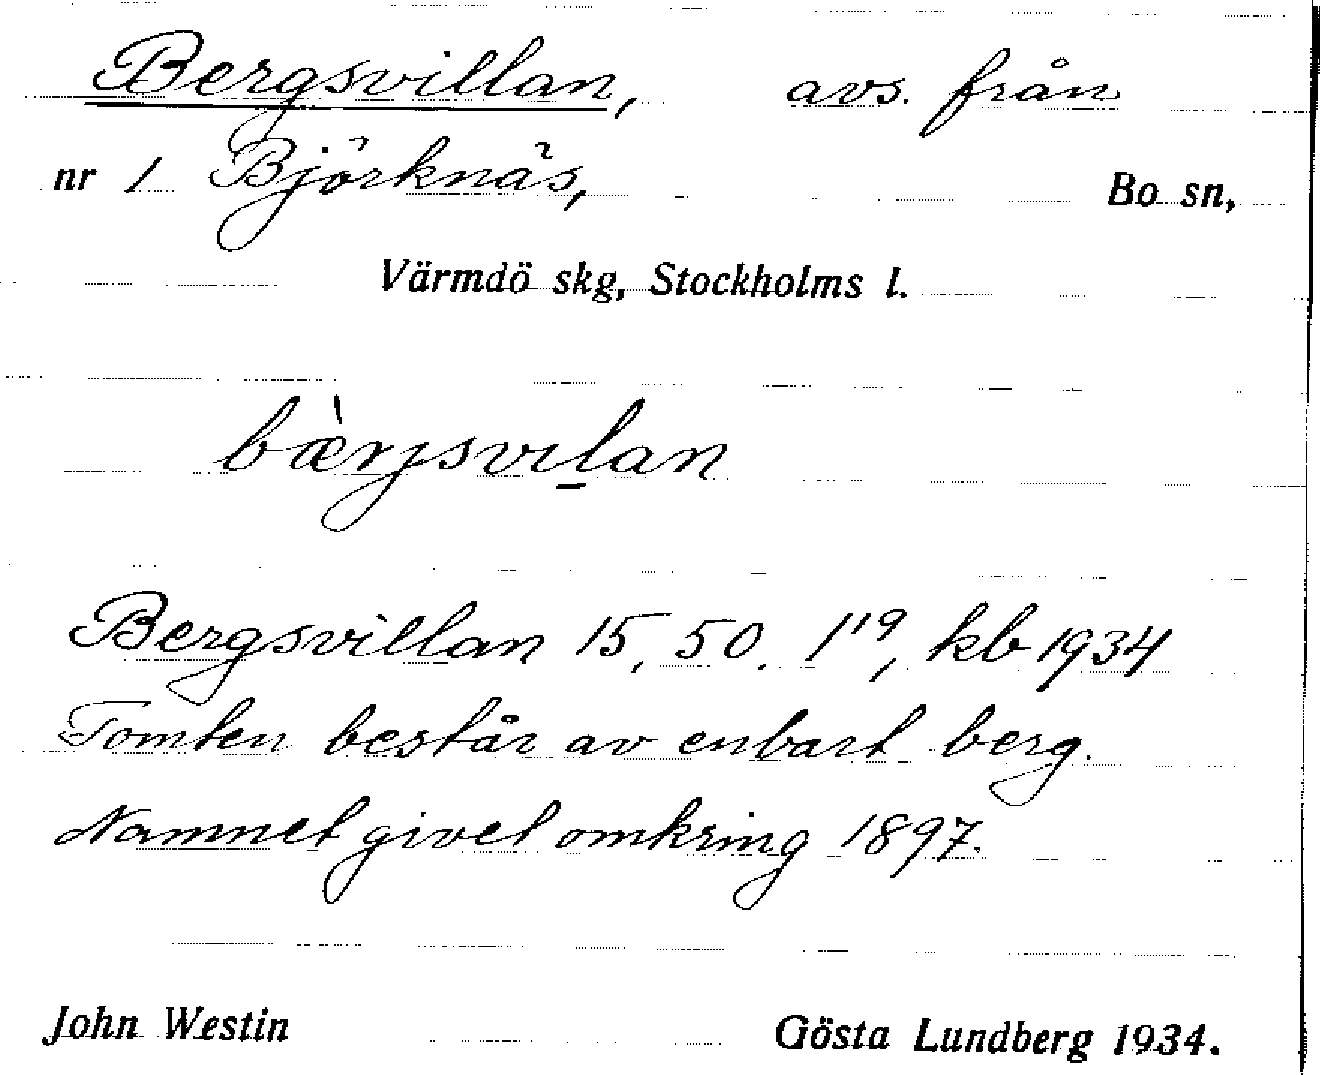 Bergsvillan, avs. från
nr 1 Björknäs, Bo sn,
Värmdö skg, Stockholms l.
bæ̀rjsvilan
Bergsvillan 15, 50. 1¹¹⁹, kb 1934
Tomten består av enbart berg.
Namnet givet omkring 1897.
John Westin Gösta Lundberg 1934.